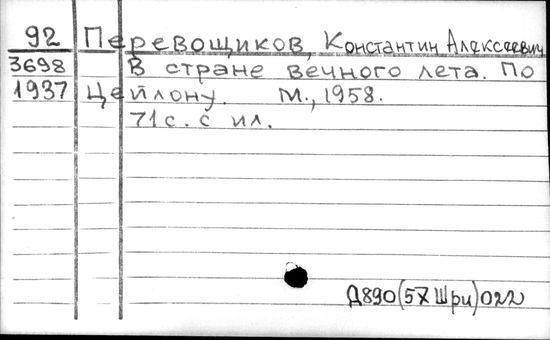 92 Перевощиков, Константин Алексеевич
3698 В стране вечного лета. По
1937 Цейлону. М., 1958.
71с. с ил.
Д890(5Х Шри)022